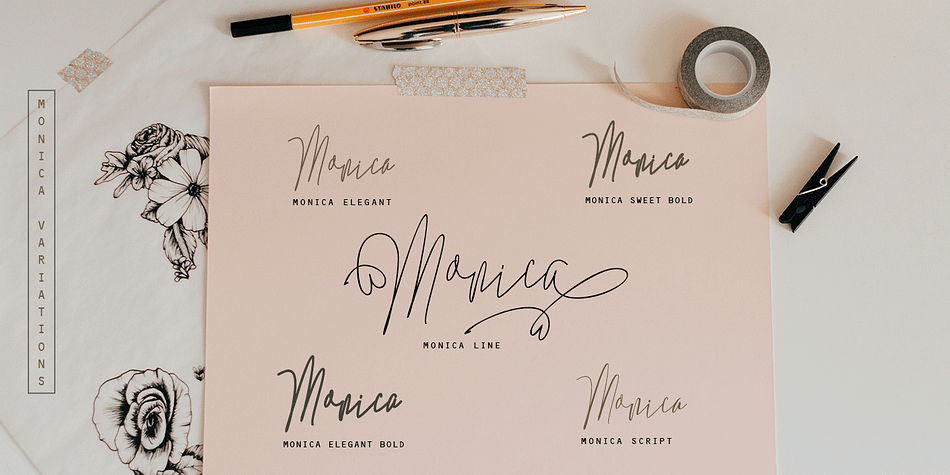 STABILO point 88
MONICA VARIATIONS
Monica
MONICA ELEGANT
Monica
MONICA SWEET BOLD
Monica
MONICA LINE
Monica
MONICA ELEGANT BOLD
Monica
MONICA SCRIPT